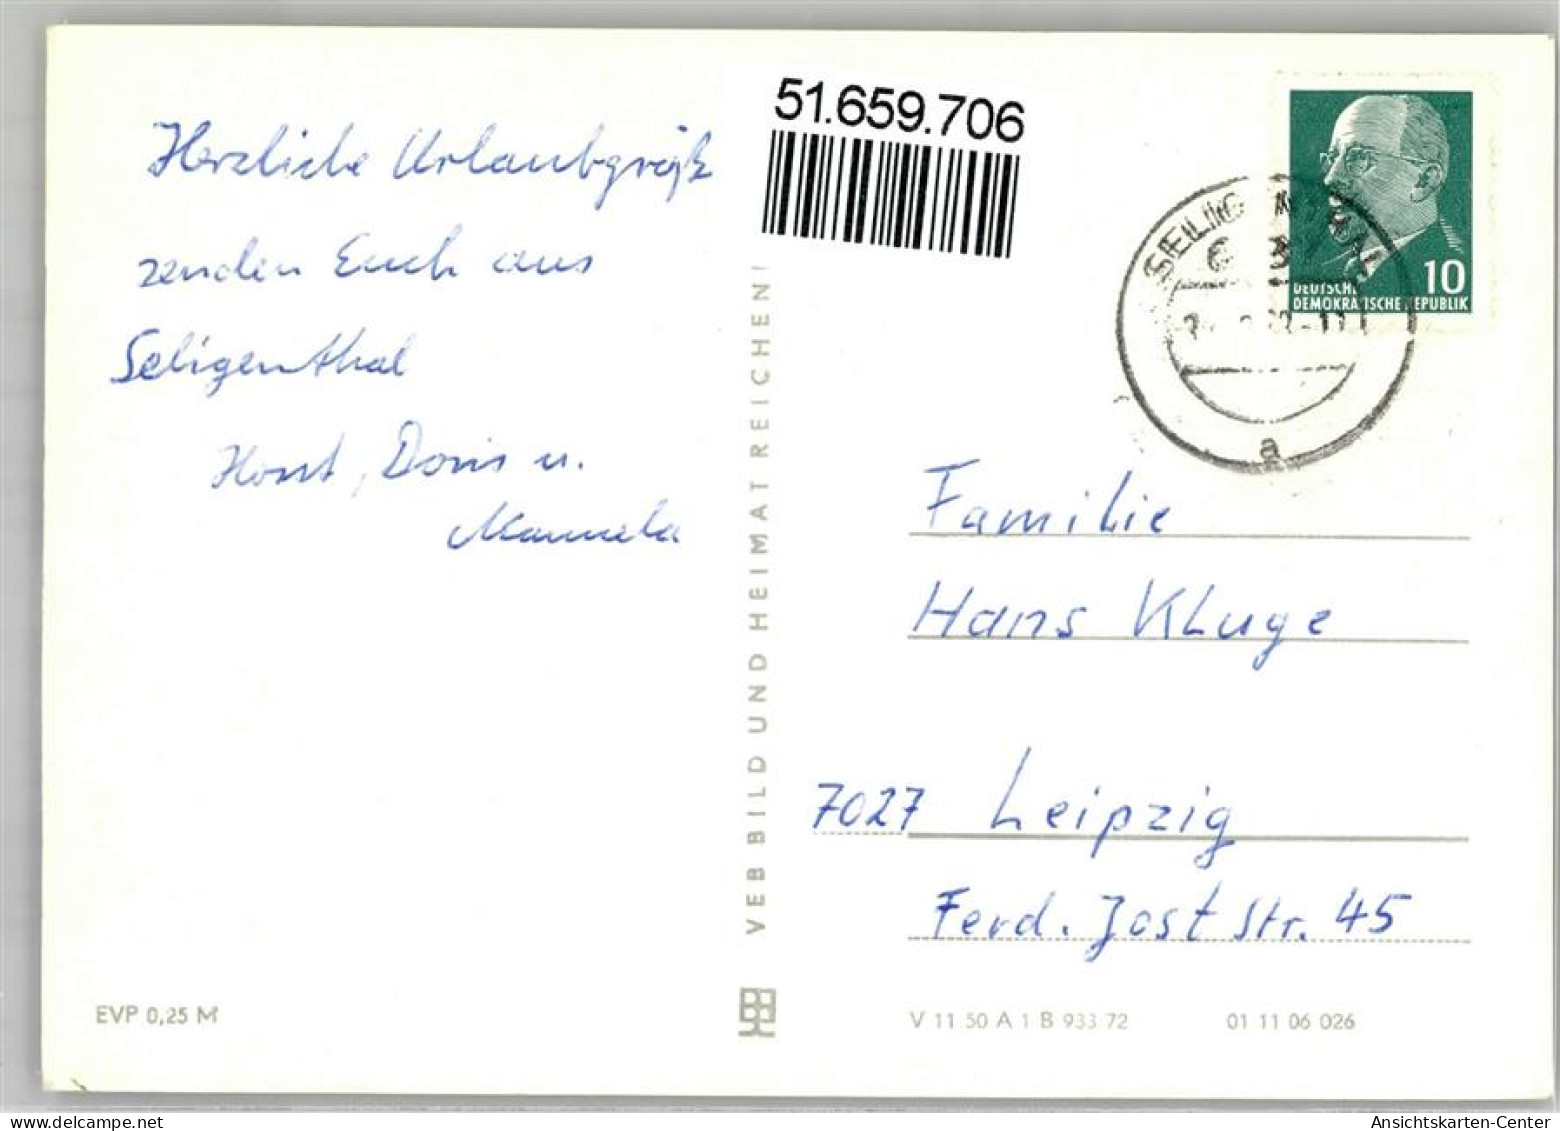 Herzliche Urlaubsgrüße
senden Euch aus
Seligenthal
Horst, Doris u.
Manuela
EVP 0,25 M
VEB BILD UND HEIMAT REICHENB
51.659.706
10
DEUTSCHE
DEMOKRATISCHE REPUBLIK
SELIGENTHAL
a
Familie
Hans Kluge
7027 Leipzig
Ferd. Jost Str. 45
V 11 50 A 1 B 933 72 01 11 06 026
www.delcampe.net
Ansichtskarten-Center